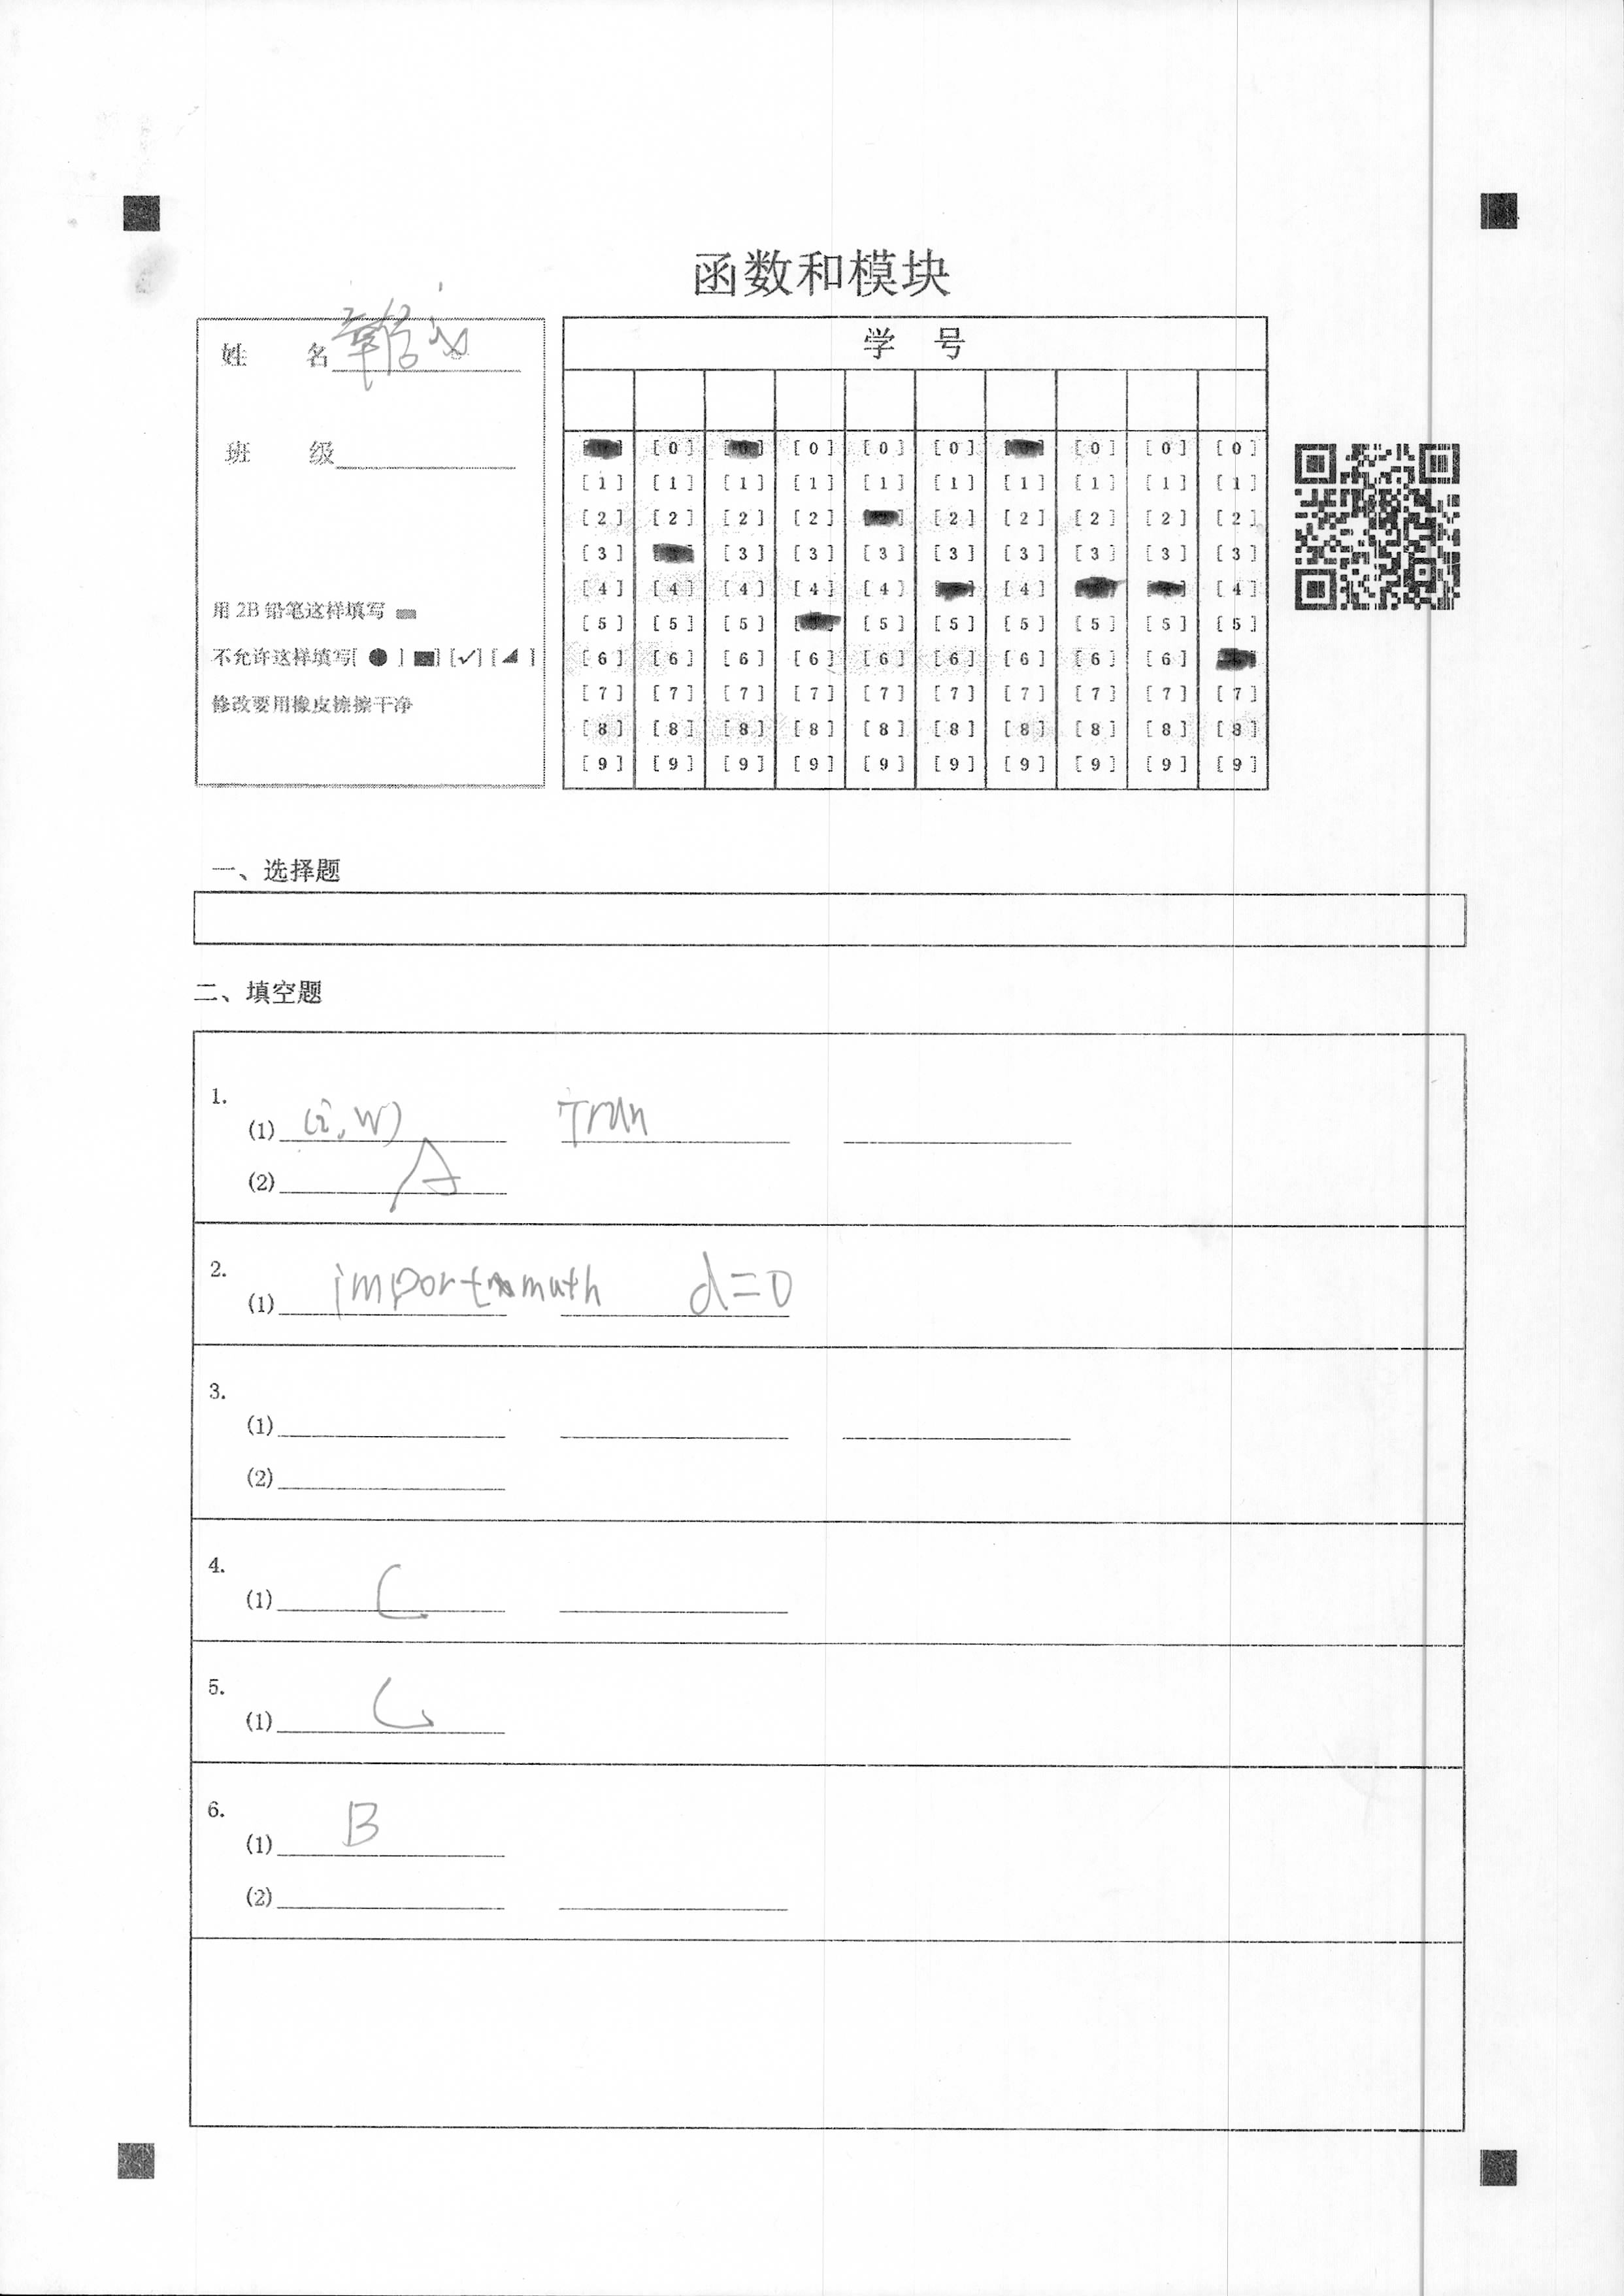 函数和模块
姓 名
班 级
用 2B 铅笔这样填写
不允许这样填写[ ● ] [■] [✓] [◢ ]
修改要用橡皮擦擦干净
学 号
[0] [0] [0] [0] [0] [0] [0]
[1] [1] [1] [1] [1] [1] [1] [1] [1] [1]
[2] [2] [2] [2] [2] [2] [2] [2] [2]
[3] [3] [3] [3] [3] [3] [3] [3] [3]
[4] [4] [4] [4] [4] [4] [4]
[5] [5] [5] [5] [5] [5] [5] [5] [5]
[6] [6] [6] [6] [6] [6] [6] [6] [6]
[7] [7] [7] [7] [7] [7] [7] [7] [7] [7]
[8] [8] [8] [8] [8] [8] [8] [8] [8] [8]
[9] [9] [9] [9] [9] [9] [9] [9] [9] [9]
一、选择题
二、填空题
1.
(1) (i,w) Trun
(2) A
2.
(1) import math d=0
3.
(1)
(2)
4.
(1) C
5.
(1) C
6.
(1) B
(2)